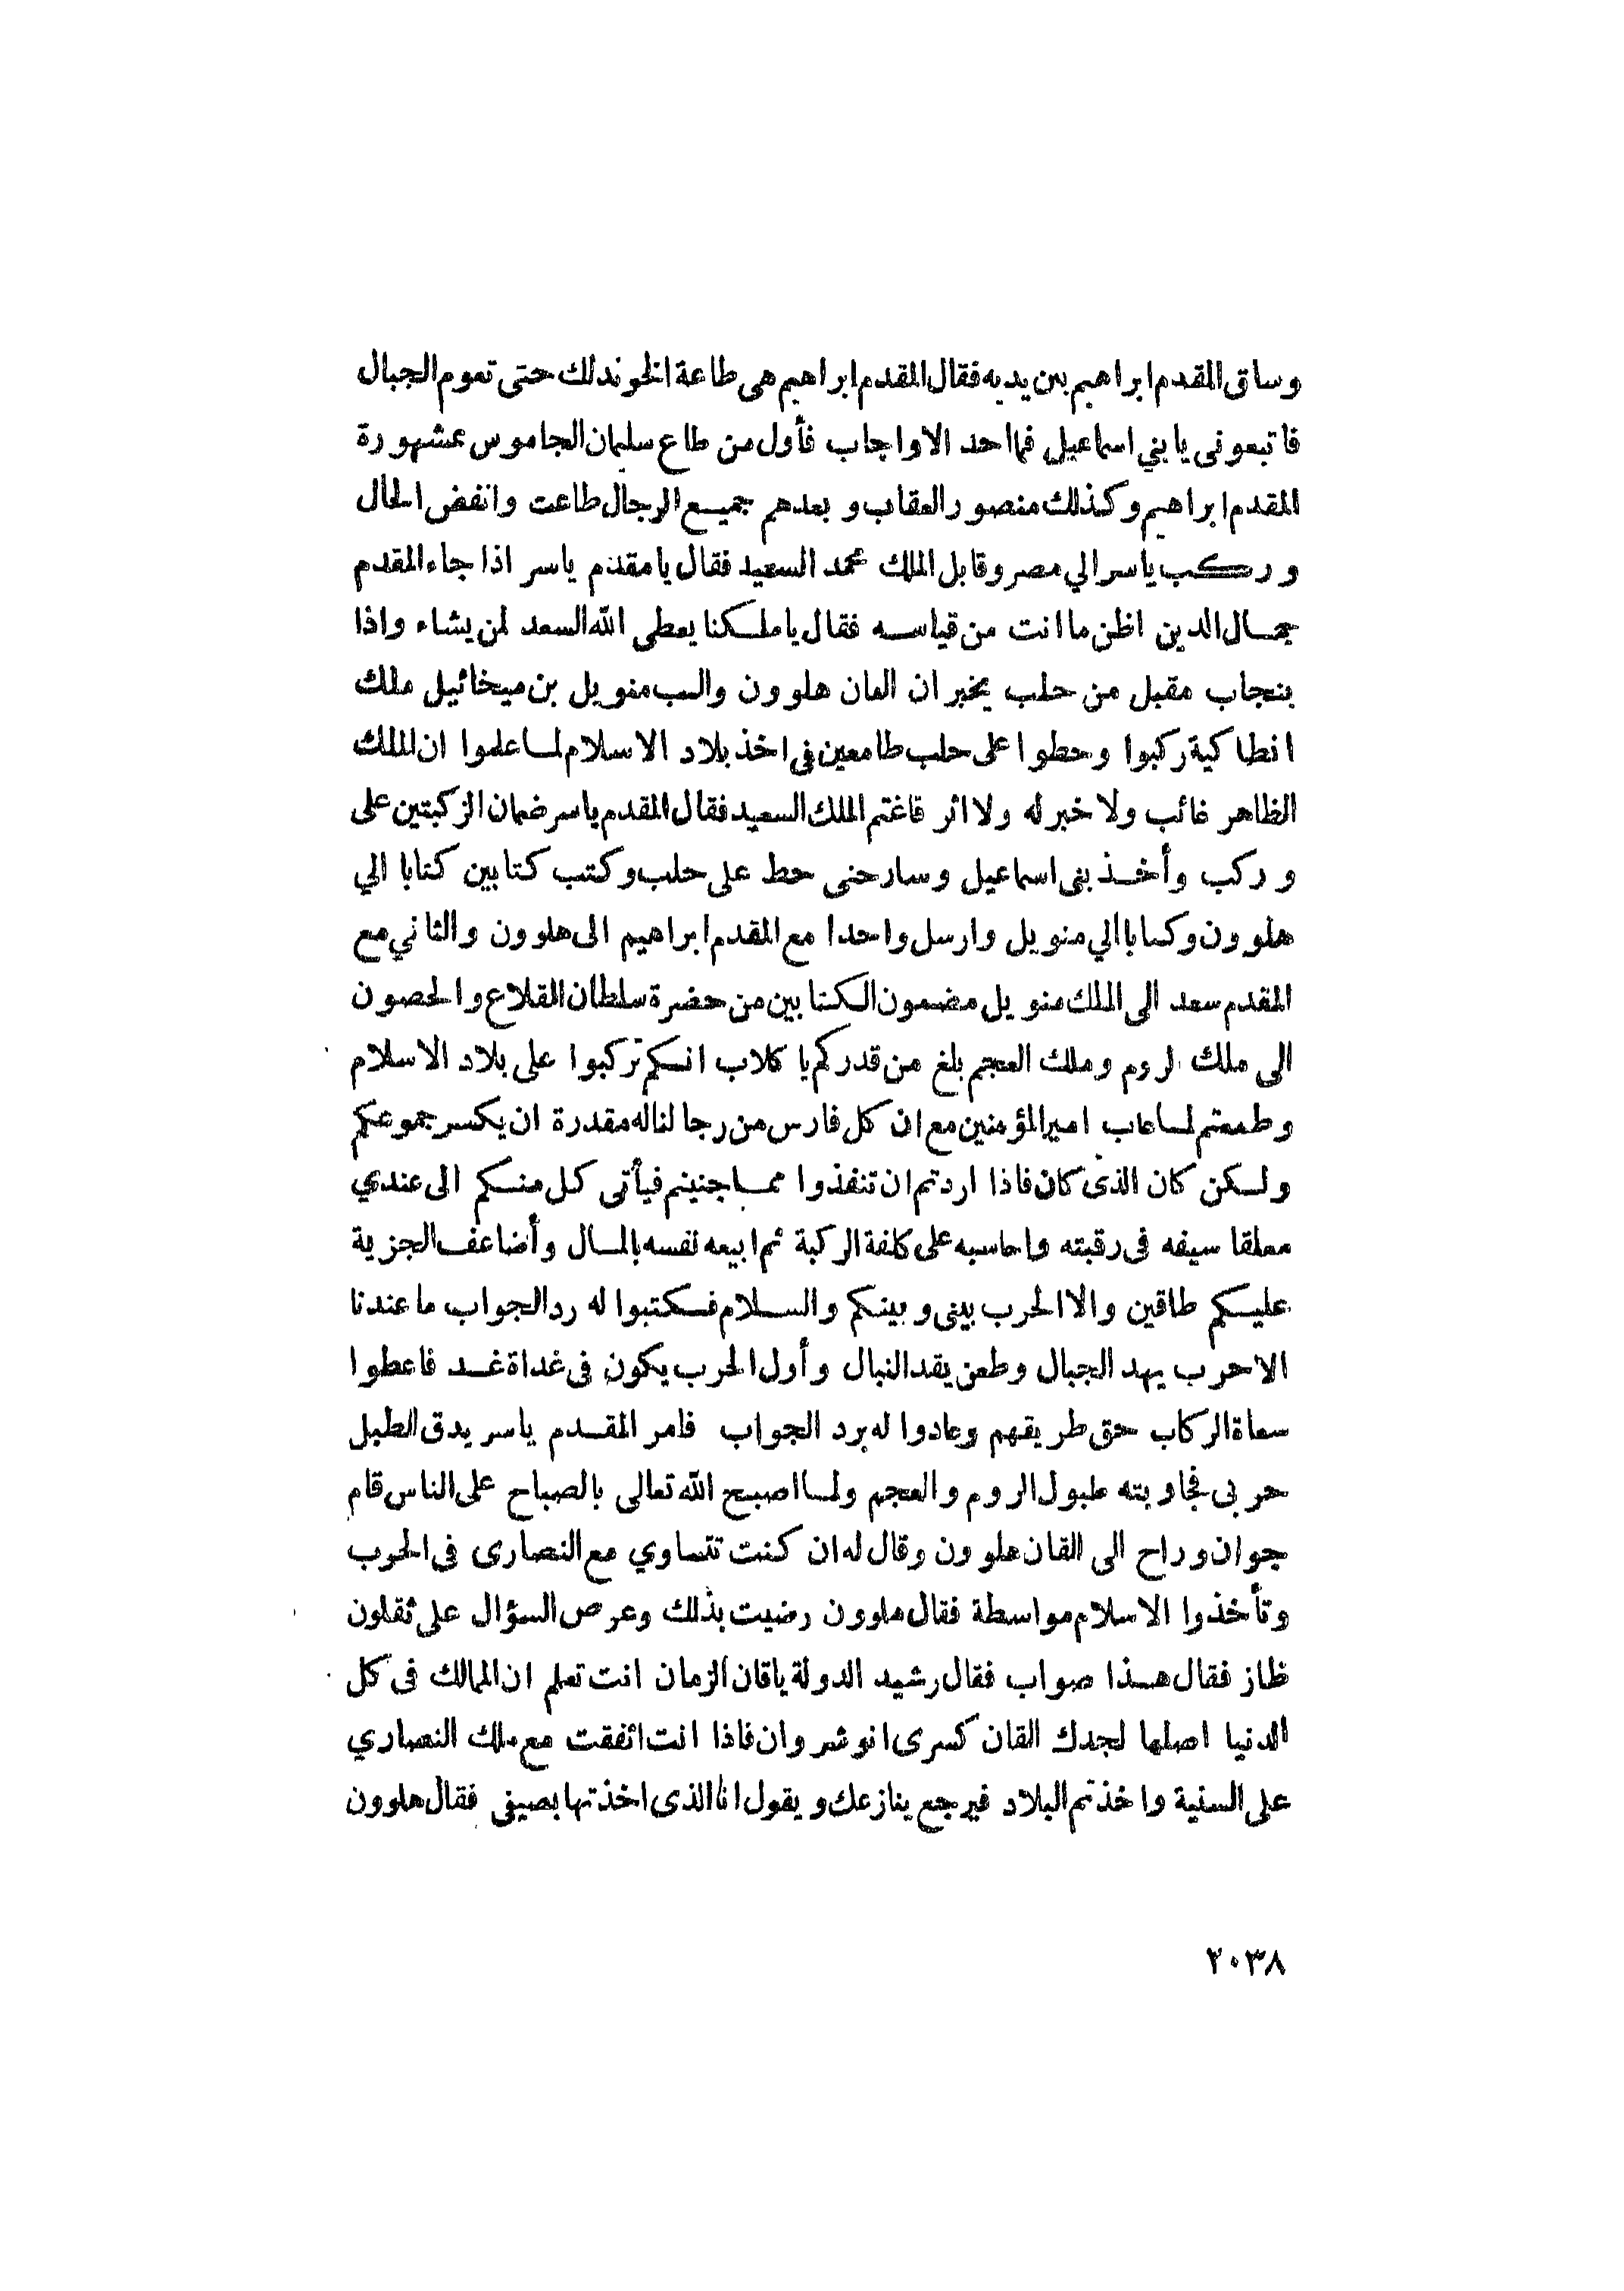 وساق المقدم ابراهيم بين يديه فقال المقدم ابراهيم هى طاعة الخوندلك حتى تعوم الجبال
فاتبعونى يا بني اسماعيل فما احد الا واجاب فأول من طاع سليمان الجاموس بمشهورة
المقدم ابراهيم وكذلك منصور العقاب و بعدهم جميع الرجال طاعت وانفض الحال
وركب ياسر الي مصر وقابل الملك محمد السعيد فقال يا مقدم ياسر اذا جاء المقدم
جمال الدين اظن ما انت من قياسه فقال يا ملكنا يعطى الله السعد لمن يشاء واذا
بنجاب مقبل من حلب يخبر ان القان هلوون والب منويل بن ميخائيل ملك
انطاكية ركبوا وحطوا على حلب طامعين فى اخذ بلاد الاسلام لما علموا ان الملك
الظاهر غائب ولا خبر له ولا اثر فاغتم الملك السعيد فقال المقدم ياسر ضمان الركبتين على
وركب وأخذ بنى اسماعيل وسار حتى حط على حلب وكتب كتابين كتابا الي
هلوون وكتابا الي منويل وارسل واحدا مع المقدم ابراهيم الى هلوون والثاني مع
المقدم سعد الى الملك منويل مضمون الكتابين من حضرة سلطان القلاع والحصون
الى ملك الروم وملك العجم بلغ من قدركم يا كلاب انكم تركبوا على بلاد الاسلام
وطمعتم لما غاب امير المؤمنين مع ان كل فارس من رجالنا له مقدرة ان يكسر جموعكم
ولكن كان الذى كان فاذا اردتم ان تنفذوا مما جنيتم فيأتى كل منكم الى عندي
معلقا سيفه فى رقبته واحاسبه على كلفة الركبة ثم ابيعه نفسه بالمال وأضاعف الجزية
عليكم طاقين والا الحرب بينى وبينكم والسلام فكتبوا له رد الجواب ما عندنا
الا حرب يهد الجبال وطعن يقد النبال وأول الحرب يكون فى غداة غد فاعطوا
سعاة الركاب حق طريقهم وعادوا له برد الجواب فامر المقدم ياسر يدق الطبل
حربى فجاوبته طبول الروم والعجم ولما اصبح الله تعالى بالصباح على الناس قام
جوان وراح الى القان هلوون وقال له ان كنت تتساوي مع النصارى فى الحرب
وتأخذوا الاسلام مواسطة فقال هلوون رضيت بذلك وعرض السؤال على ثقلون
ظاز فقال هذا صواب فقال رشيد الدولة ياقان الزمان انت تعلم ان الممالك فى كل
الدنيا اصلها لجدك القان كسرى انوشروان فاذا انت اتفقت مع ملك النصاري
على السنية واخذتم البلاد فيرجع ينازعك ويقول انا الذى اخذتها بصيفى فقال هلوون
٢٠٣٨